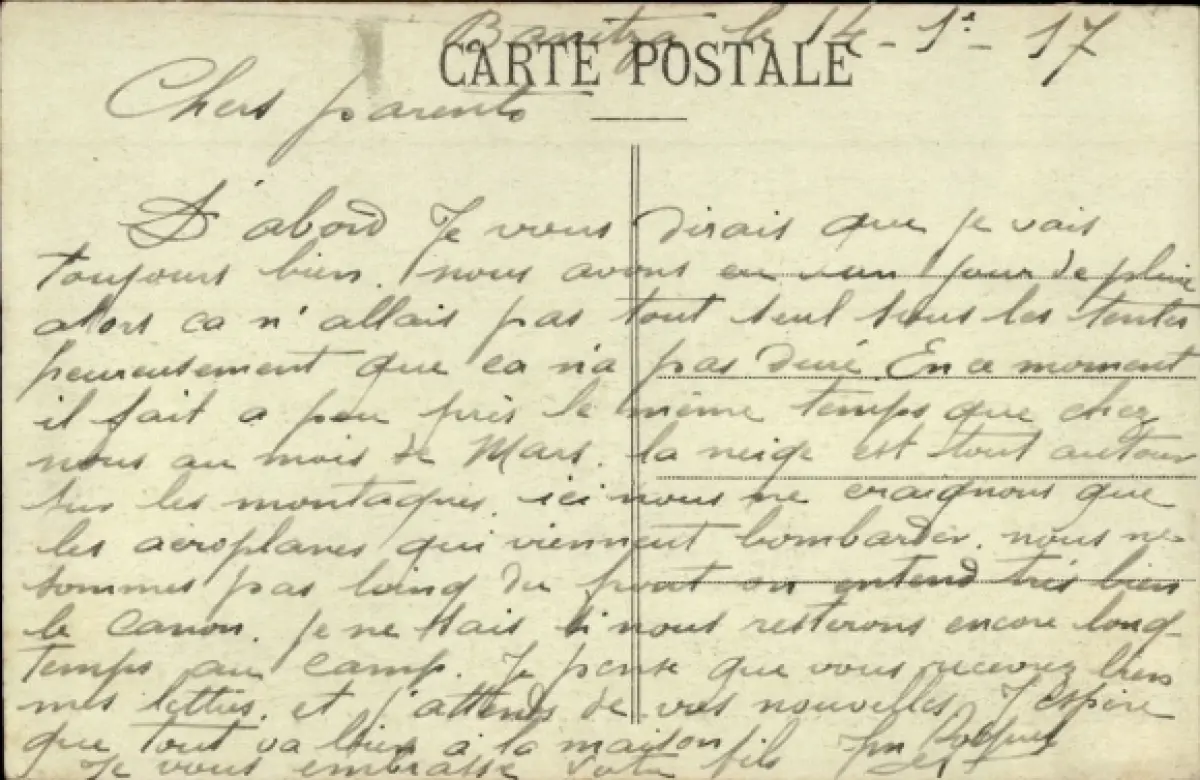 Banitza le 14 - 1è - 17
CARTE POSTALE
Chers parents
D'abord Je vous dirais que je vais
toujours bien. nous avons eu un jour de pluie
alors ca n'allais pas tout seul sous les tentes
heureusement que ca n'a pas duré. En ce moment
il fait a peu près le même temps que chez
nous au mois de Mars. la neige est tout autour
sur les montagnes. ici nous ne craignons que
les aéroplanes qui viennent bombarder. nous ne
sommes pas loing du front on entend très bien
le canon. Je ne sais si nous resterons encore long-
temps au camp. Je pense que vous recevrez bien
mes lettres. et j'attends de vos nouvelles. J'espère
que tout va bien a la maison
Je vous embrasse votre fils